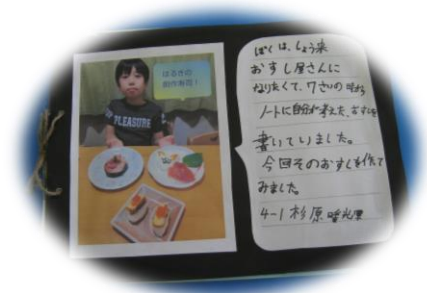 はるきの
創作寿司!
PLEASURE
ぼくは、しょう来
おすし屋さんに
なりたくて、7さいの時から
ノートに自分で考えた、おすしを
書いていました。
今回そのおすしを作って
みました。
4-1 杉原